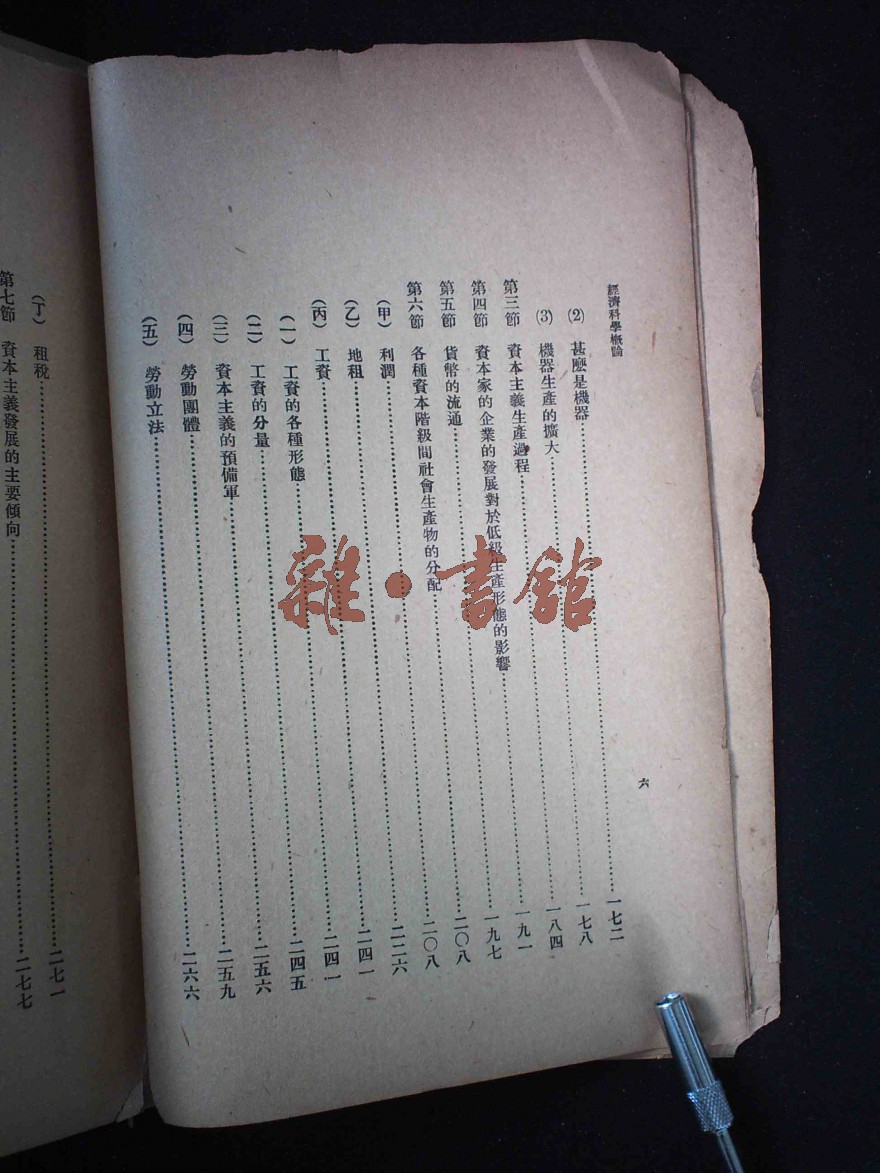 經濟科學概論
六
(2) 甚麽是機器……一七二
(3) 機器生產的擴大……一七八
第三節 資本主義生產過程……一八四
第四節 資本家的企業的發展對於低級生產形態的影響……一九一
第五節 貨幣的流通……一九七
第六節 各種資本階級間社會生產物的分配……二〇八
(甲) 利潤……二〇八
(乙) 地租……二二六
(丙) 工資……二四一
(一) 工資的各種形態……二四一
(二) 工資的分量……二四五
(三) 資本主義的預備軍……二五六
(四) 勞動團體……二五九
(五) 勞動立法……二六六
(丁) 租稅……二七一
第七節 資本主義發展的主要傾向……二七七
雜·書館